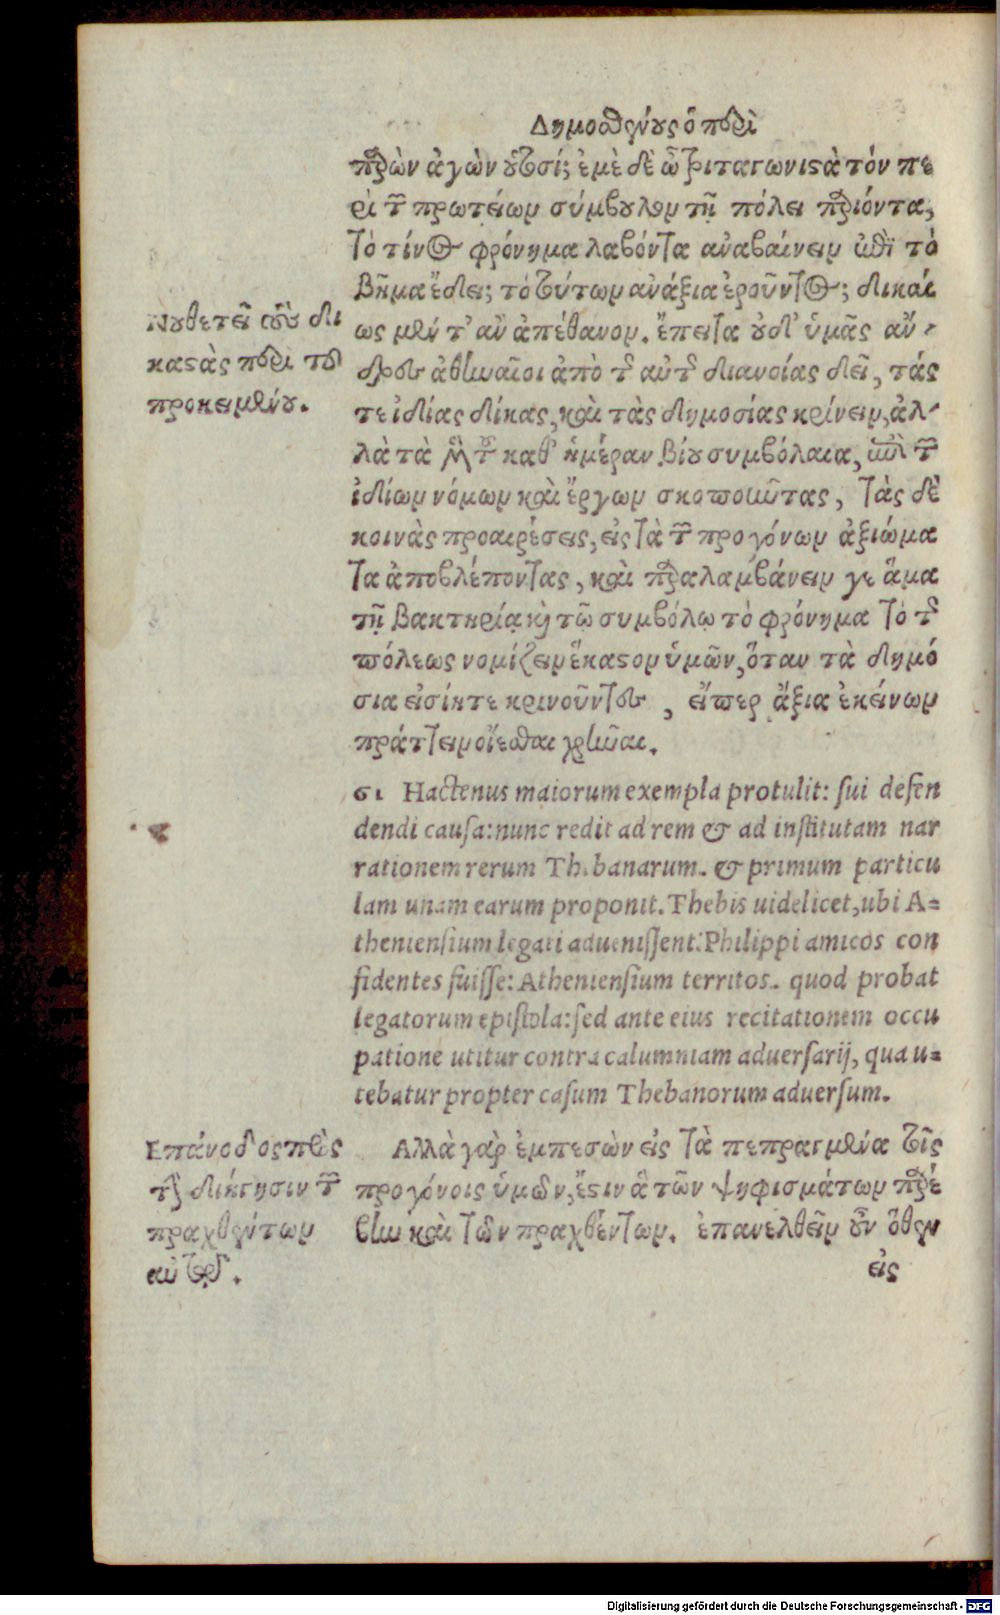 Δημοσθένους ὁ περὶ
παρὼν ἀγὼν οὑτοσί; ἐμὲ δὲ ὦ τριταγωνιστὰ τὸν πε
ρὶ τῶν πρωτείων σύμβουλον τῇ πόλει παριόντα,
τὸ τίνος φρόνημα λαβόντα ἀναβαίνειν ἐπὶ τὸ
βῆμα ἔδει; τὸ τούτων ἀνάξια ἐροῦντος; δικαί
Νουθετεῖ τοὺς δι
καστὰς περὶ τοῦ
προκειμένου.
ως μέν τ' ἂν ἀπέθανον. ἔπειτα οὐδ' ὑμᾶς ἄν-
δρες ἀθηναῖοι ἀπὸ τῆς αὐτῆς διανοίας δεῖ, τάς
τε ἰδίας δίκας, καὶ τὰς δημοσίας κρίνειν, ἀλ-
λὰ τὰ μὲν τοῦ καθ' ἡμέραν βίου συμβόλαια, ἐπὶ τῶν
ἰδίων νόμων καὶ ἔργων σκοποῦντας, τὰς δὲ
κοινὰς προαιρέσεις, εἰς τὰ τῶν προγόνων ἀξιώμα
τα ἀποβλέποντας, καὶ παραλαμβάνειν γε ἅμα
τῇ βακτηρίᾳ καὶ τῷ συμβόλῳ τὸ φρόνημα τὸ τῆς
πόλεως νομίζειν ἕκαστον ὑμῶν, ὅταν τὰ δημό
σια εἰσίητε κρινοῦντες, εἴπερ ἄξια ἐκείνων
πράττειν οἴεσθαι χρῆναι.
61 Hactenus maiorum exempla protulit: sui defen
dendi causa: nunc redit ad rem & ad institutam nar
rationem rerum Thebanarum. & primum particu
lam unam earum proponit. Thebis uidelicet, ubi A=
theniensium legati aduenissent: Philippi amicos con
fidentes fuisse: Atheniensium territos. quod probat
legatorum epistola: sed ante eius recitationem occu
patione utitur contra calumniam aduersarij, qua u=
tebatur propter casum Thebanorum aduersum.
Επάνοδος πρὸς
τὴν διήγησιν τῶν
πραχθέντων
αὐτῷ.
Αλλὰ γὰρ ἐμπεσὼν εἰς τὰ πεπραγμένα τοῖς
προγόνοις ὑμῶν, ἔστιν ἃ τῶν ψηφισμάτων παρέ
βην καὶ τῶν πραχθέντων. ἐπανελθεῖν οὖν ὅθεν
εἰς
Digitalisierung gefördert durch die Deutsche Forschungsgemeinschaft - DFG